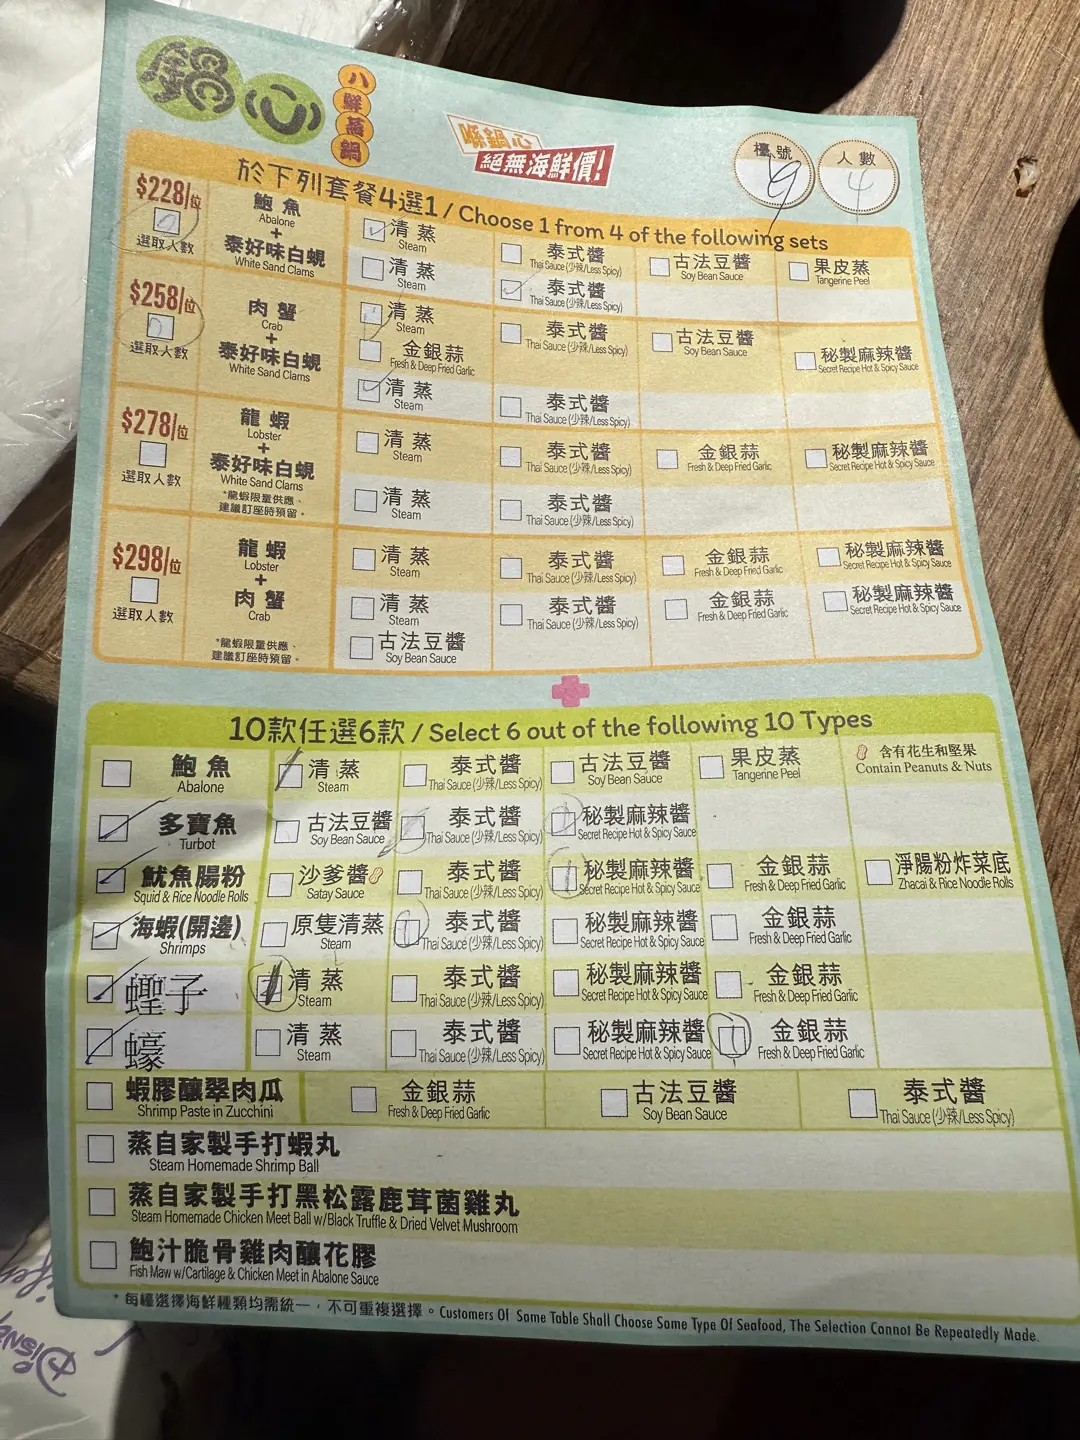 鍋心
八鮮蒸鍋
喺鍋心
絕無海鮮價!
檯號
9
人數
4
於下列套餐4選1 / Choose 1 from 4 of the following sets
$228/位
選取人數
鮑魚
Abalone
+
泰好味白蜆
White Sand Clams
清蒸
Steam
泰式醬
Thai Sauce (少辣/Less Spicy)
古法豆醬
Soy Bean Sauce
果皮蒸
Tangerine Peel
清蒸
Steam
泰式醬
Thai Sauce (少辣/Less Spicy)
$258/位
選取人數
肉蟹
Crab
+
泰好味白蜆
White Sand Clams
清蒸
Steam
泰式醬
Thai Sauce (少辣/Less Spicy)
古法豆醬
Soy Bean Sauce
秘製麻辣醬
Secret Recipe Hot & Spicy Sauce
金銀蒜
Fresh & Deep Fried Garlic
清蒸
Steam
泰式醬
Thai Sauce (少辣/Less Spicy)
$278/位
選取人數
龍蝦
Lobster
+
泰好味白蜆
White Sand Clams
*龍蝦限量供應、
建議訂座時預留。
清蒸
Steam
泰式醬
Thai Sauce (少辣/Less Spicy)
金銀蒜
Fresh & Deep Fried Garlic
秘製麻辣醬
Secret Recipe Hot & Spicy Sauce
清蒸
Steam
泰式醬
Thai Sauce (少辣/Less Spicy)
$298/位
選取人數
龍蝦
Lobster
+
肉蟹
Crab
*龍蝦限量供應、
建議訂座時預留。
清蒸
Steam
泰式醬
Thai Sauce (少辣/Less Spicy)
金銀蒜
Fresh & Deep Fried Garlic
秘製麻辣醬
Secret Recipe Hot & Spicy Sauce
清蒸
Steam
泰式醬
Thai Sauce (少辣/Less Spicy)
金銀蒜
Fresh & Deep Fried Garlic
秘製麻辣醬
Secret Recipe Hot & Spicy Sauce
古法豆醬
Soy Bean Sauce
10款任選6款 / Select 6 out of the following 10 Types
鮑魚
Abalone
清蒸
Steam
泰式醬
Thai Sauce (少辣/Less Spicy)
古法豆醬
Soy Bean Sauce
果皮蒸
Tangerine Peel
含有花生和堅果
Contain Peanuts & Nuts
多寶魚
Turbot
古法豆醬
Soy Bean Sauce
泰式醬
Thai Sauce (少辣/Less Spicy)
秘製麻辣醬
Secret Recipe Hot & Spicy Sauce
魷魚腸粉
Squid & Rice Noodle Rolls
沙爹醬
Satay Sauce
泰式醬
Thai Sauce (少辣/Less Spicy)
秘製麻辣醬
Secret Recipe Hot & Spicy Sauce
金銀蒜
Fresh & Deep Fried Garlic
淨腸粉炸菜底
Zhacai & Rice Noodle Rolls
海蝦(開邊)
Shrimps
原隻清蒸
Steam
泰式醬
Thai Sauce (少辣/Less Spicy)
秘製麻辣醬
Secret Recipe Hot & Spicy Sauce
金銀蒜
Fresh & Deep Fried Garlic
蟶子
清蒸
Steam
泰式醬
Thai Sauce (少辣/Less Spicy)
秘製麻辣醬
Secret Recipe Hot & Spicy Sauce
金銀蒜
Fresh & Deep Fried Garlic
蠔
清蒸
Steam
泰式醬
Thai Sauce (少辣/Less Spicy)
秘製麻辣醬
Secret Recipe Hot & Spicy Sauce
金銀蒜
Fresh & Deep Fried Garlic
蝦膠釀翠肉瓜
Shrimp Paste in Zucchini
金銀蒜
Fresh & Deep Fried Garlic
古法豆醬
Soy Bean Sauce
泰式醬
Thai Sauce (少辣/Less Spicy)
蒸自家製手打蝦丸
Steam Homemade Shrimp Ball
蒸自家製手打黑松露鹿茸菌雞丸
Steam Homemade Chicken Meet Ball w/Black Truffle & Dried Velvet Mushroom
鮑汁脆骨雞肉釀花膠
Fish Maw w/Cartilage & Chicken Meet in Abalone Sauce
*每檯選擇海鮮種類均需統一，不可重複選擇。Customers Of Same Table Shall Choose Same Type Of Seafood, The Selection Cannot Be Repeatedly Made.